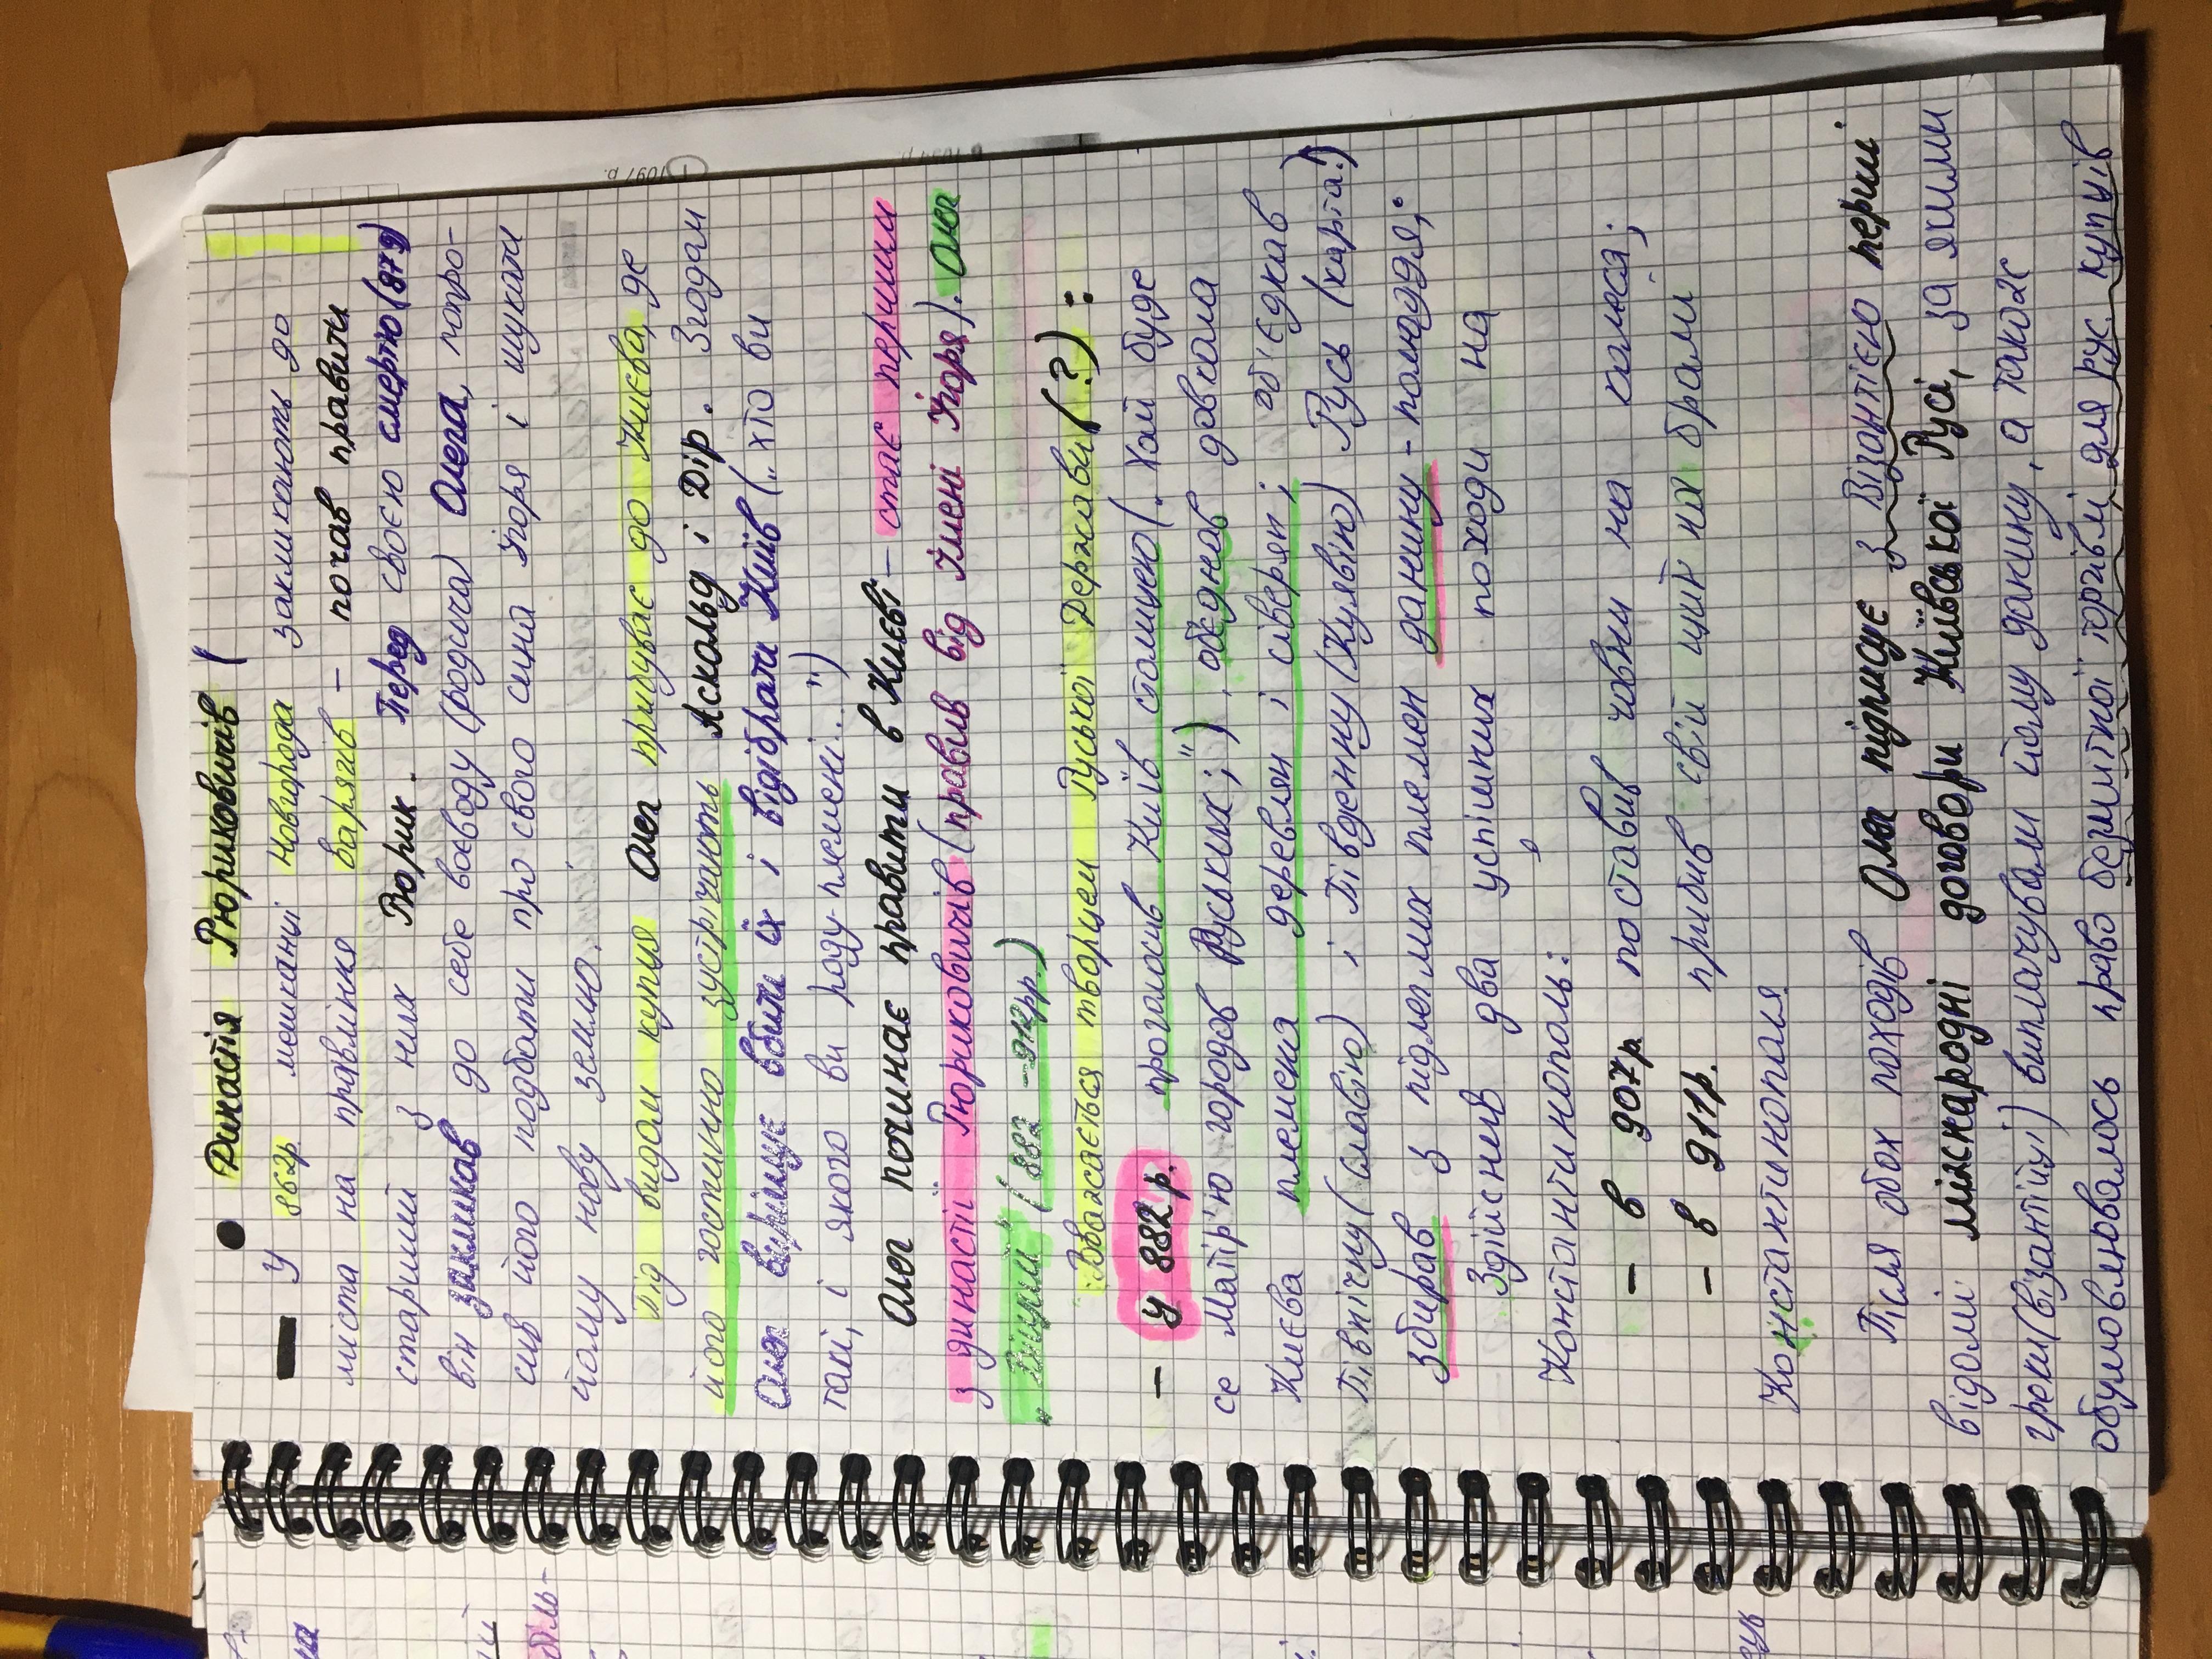 Династія Рюриковичів
— У 862р. мешканці Новгорода закликають до
міста на правління варягів – почав правити
старший з них Рюрик. Перед своєю смертю (879)
він закликав до себе воєводу (родича) Олега, попро-
сив його подбати про свого сина Ігоря і шукати
йому нову землю.
Під видом купця Олег прибуває до Києва, де
його гостинно зустрічають Аскольд і Дір. Згодом
Олег вирішує вбити їх і відібрати Київ („хто ви
такі, і якого ви роду-племені...")
Олег починає правити в Києві – стає першим
з династії Рюриковичів (правив від імені Ігоря). Олег
„Віщий" (882 – 912рр.)
Вважається творцем Руської Держави (?) :
– У 882 р. проголосив Київ столицею („Хай буде
се Матір'ю городов Руських;"), об'єднав довкола
Києва племена деревлян і сіверян; об'єднав
Північну (Славію) і Південну (Куявію) Русь (карта!)
збирав з підлеглих племен данину - полюддя;
Здійснив два успішних походи на
Константинополь:
– в 907р. поставив човни на колеса;
– в 911р. прибив свій щит на брамі
Константинополя
Після обох походів Олег підписує з Візантією перші
відомі міжнародні договори Київської Русі, за якими
греки (візантійці) виплачували йому данину, а також
обумовлювалось право безмитної торгівлі для рус. купців
1097 р.